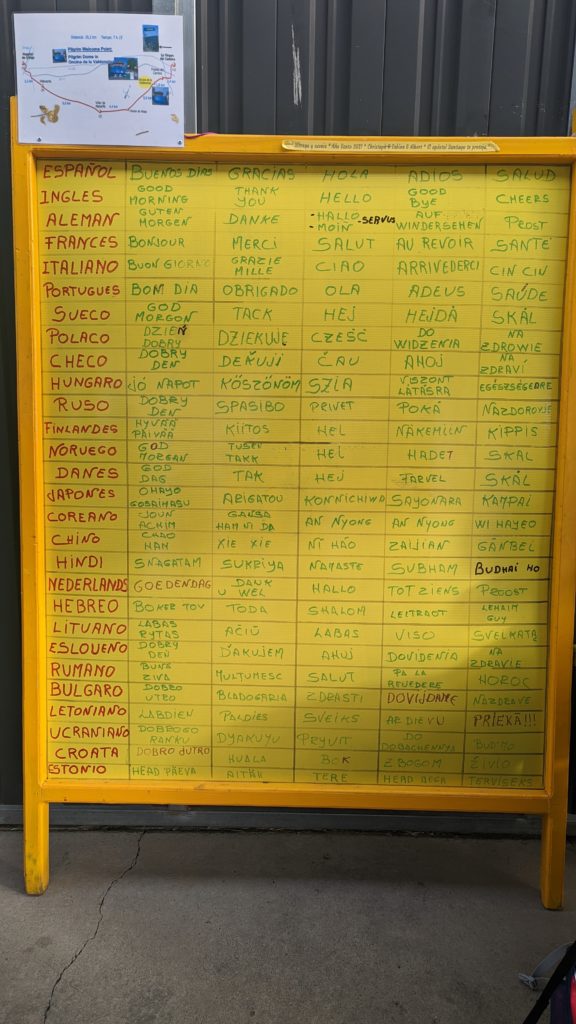 Pilgrim Welcome Point:
ESPAÑOL BUENOS DIAS GRACIAS HOLA ADIOS SALUD
INGLES GOOD MORNING THANK YOU HELLO GOOD BYE CHEERS
ALEMAN GUTEN MORGEN DANKE -HALLO -MOIN -SERVUS AUF WINDERSEHEN PROST
FRANCES BONJOUR MERCI SALUT AU REVOIR SANTÉ
ITALIANO BUON GIORNO GRAZIE MILLE CIAO ARRIVEDERCI CIN CIN
PORTUGUES BOM DIA OBRIGADO OLA ADEUS SAÚDE
SUECO GOD MORGON TACK HEJ HEJDÅ SKÅL
POLACO DZIEŃ DOBRY DZIEKUJE CZEŚĆ DO WIDZENIA NA ZDROWIE
CHECO DOBRY DEN DEŇUJI ČAU AHOJ NA ZDRAVÍ
HUNGARO JÓ NAPOT KÖSZÖNÖM SZIA VISZONT LATÁSRA EGÉSZSÉGEDRE
RUSO DOBRY DEN SPASIBO PRIVET POKÁ NAZDOROVJE
FINLANDES HYVÄÄ PÄIVÄÄ KIITOS HEI NÄKEMIIN KIPPIS
NORUEGO GOD MORGAN TUSEN TAKK HEI HADET SKAL
DANES GOD DAG TAK HEJ FARVEL SKÅL
JAPONES OHAYO GOSAIMASU ARIGATOU KONNICHIWA SAYONARA KAMPAI
COREANO JOUN ACHIM GAMSA HAMNI DA AN NYONG AN NYONG WI HAYEO
CHINO CHAO HAN XIE XIE NĪ HÁO ZAIJIAN GĀNBEI
HINDI SNAGATAM SUKRIYA NAMASTE SUBHAM BUDHAI HO
NEDERLANDS GOEDENDAG DANK U WÉL HALLO TOT ZIENS PROOST
HEBREO BOKER TOV TODA SHALOM LEITRAOT LEHAIM GUY
LITUANO LABAS RYTAS AČIŪ LABAS VISO SVEIKATĄ
ESLOUENO DOBRY DEŇ ĎAKUJEM AHUJ DOVIDENIA NA ZDRAVIE
RUMANO BUNA ZIVA MULTUMESC SALUT PA LA REVEDERE NOROC
BULGARO DOBRO UTRO BLADOGARIA ZDRASTI DOVIJDANE NAZDRAVE
LETONIANO LABDIEN PALDIES SVEIKS AR DIEVU PRIEKĀ!!!
UCRANIANO DOBROGO RANKU DYAKUYU PRYVIT DO POBACHENNYA BUDMO
CROATA DOBRO JUTRO HVALA BOK Z BOGOM ŽIVIO
ESTONIO HEAD PÄEVA AITÄH TERE HEAD AEGA TERVISEKS